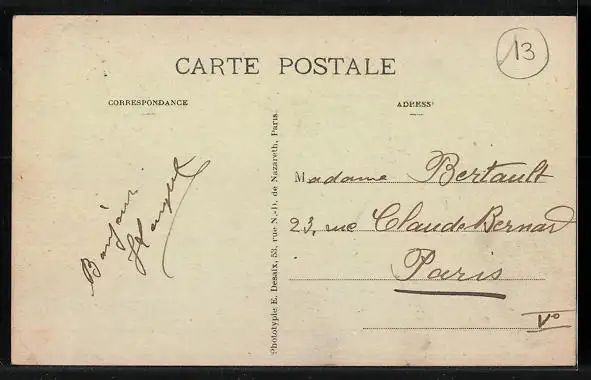 CARTE POSTALE
13
CORRESPONDANCE
ADRESSE
Bonjour
Phototypie E. Desaix, 53, rue N.-D. de Nazareth, Paris.
Madame Bertault
23, rue Claude Bernard
Paris
Vº